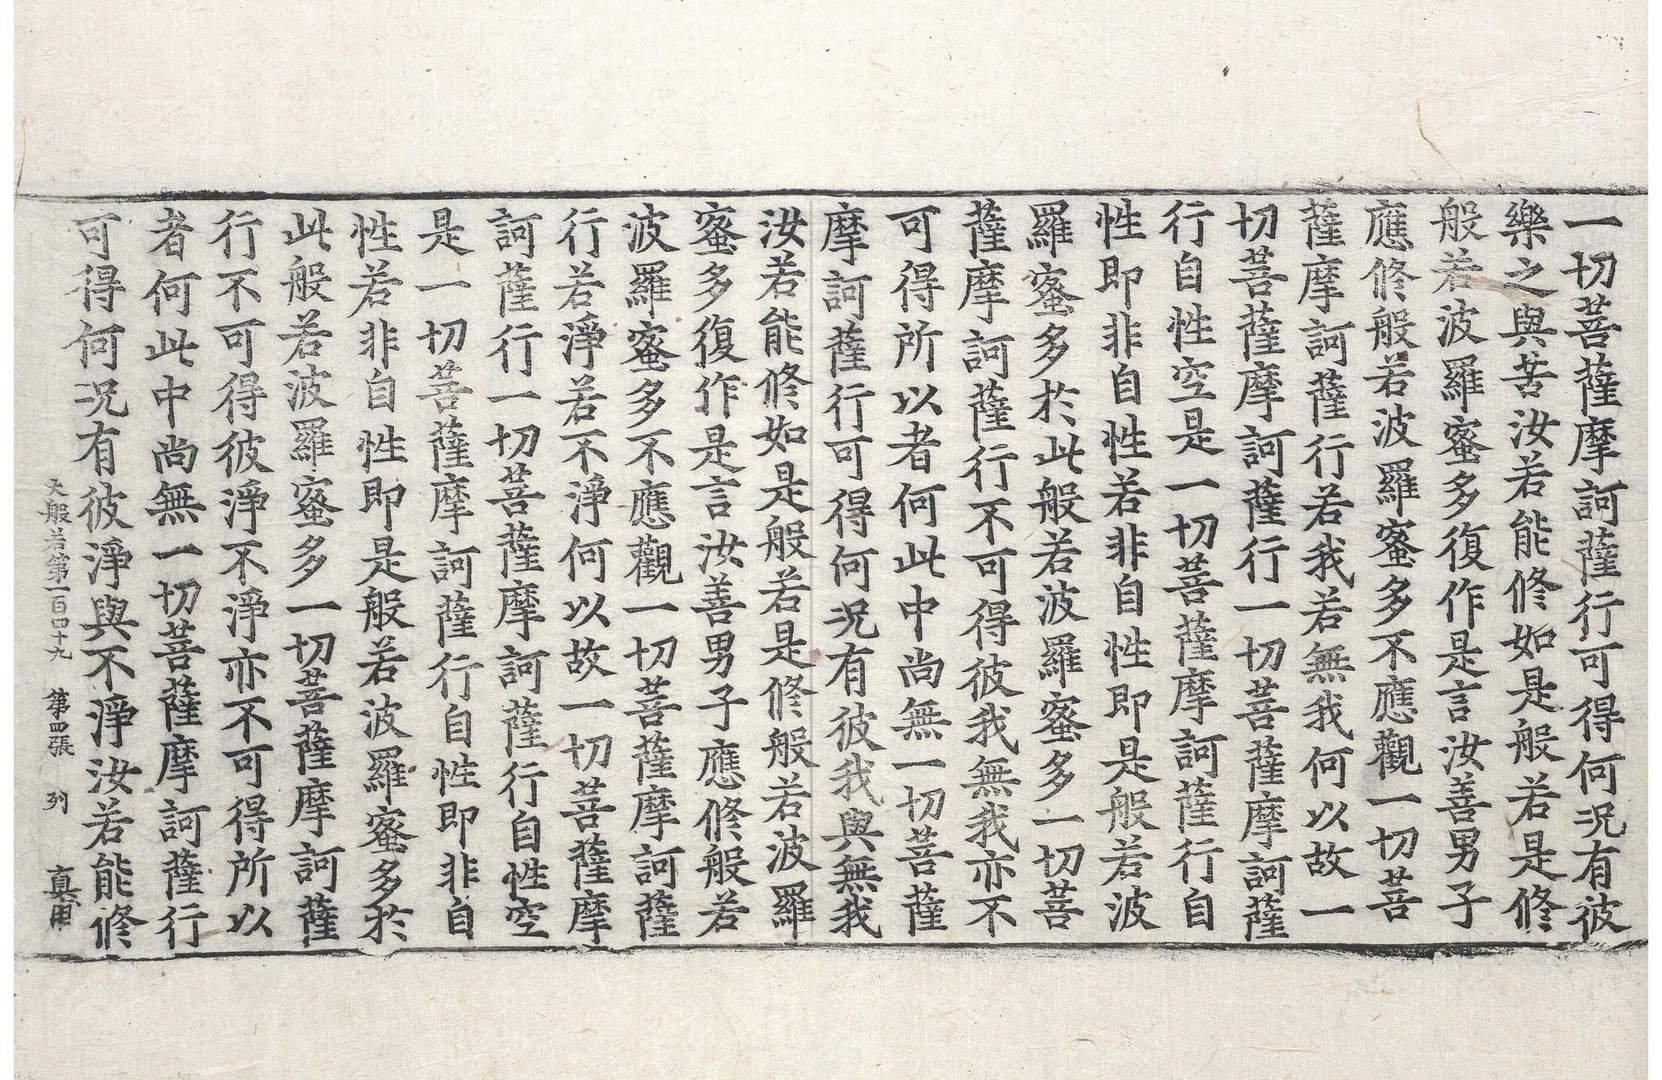 一切菩薩摩訶薩行可得何況有彼
樂之與苦汝若能修如是般若是修
般若波羅蜜多復作是言汝善男子
應修般若波羅蜜多不應觀一切菩
薩摩訶薩行若我若無我何以故一
切菩薩摩訶薩行一切菩薩摩訶薩
行自性空是一切菩薩摩訶薩行自
性即非自性若非自性即是般若波
羅蜜多於此般若波羅蜜多一切菩
薩摩訶薩行不可得彼我無我亦不
可得所以者何此中尚無一切菩薩
摩訶薩行可得何況有彼我與無我
汝若能修如是般若是修般若波羅
蜜多復作是言汝善男子應修般若
波羅蜜多不應觀一切菩薩摩訶薩
行若淨若不淨何以故一切菩薩摩
訶薩行一切菩薩摩訶薩行自性空
是一切菩薩摩訶薩行自性即非自
性若非自性即是般若波羅蜜多於
此般若波羅蜜多一切菩薩摩訶薩
行不可得彼淨不淨亦不可得所以
者何此中尚無一切菩薩摩訶薩行
可得何況有彼淨與不淨汝若能修
大般若第一百四十九 第四張 列